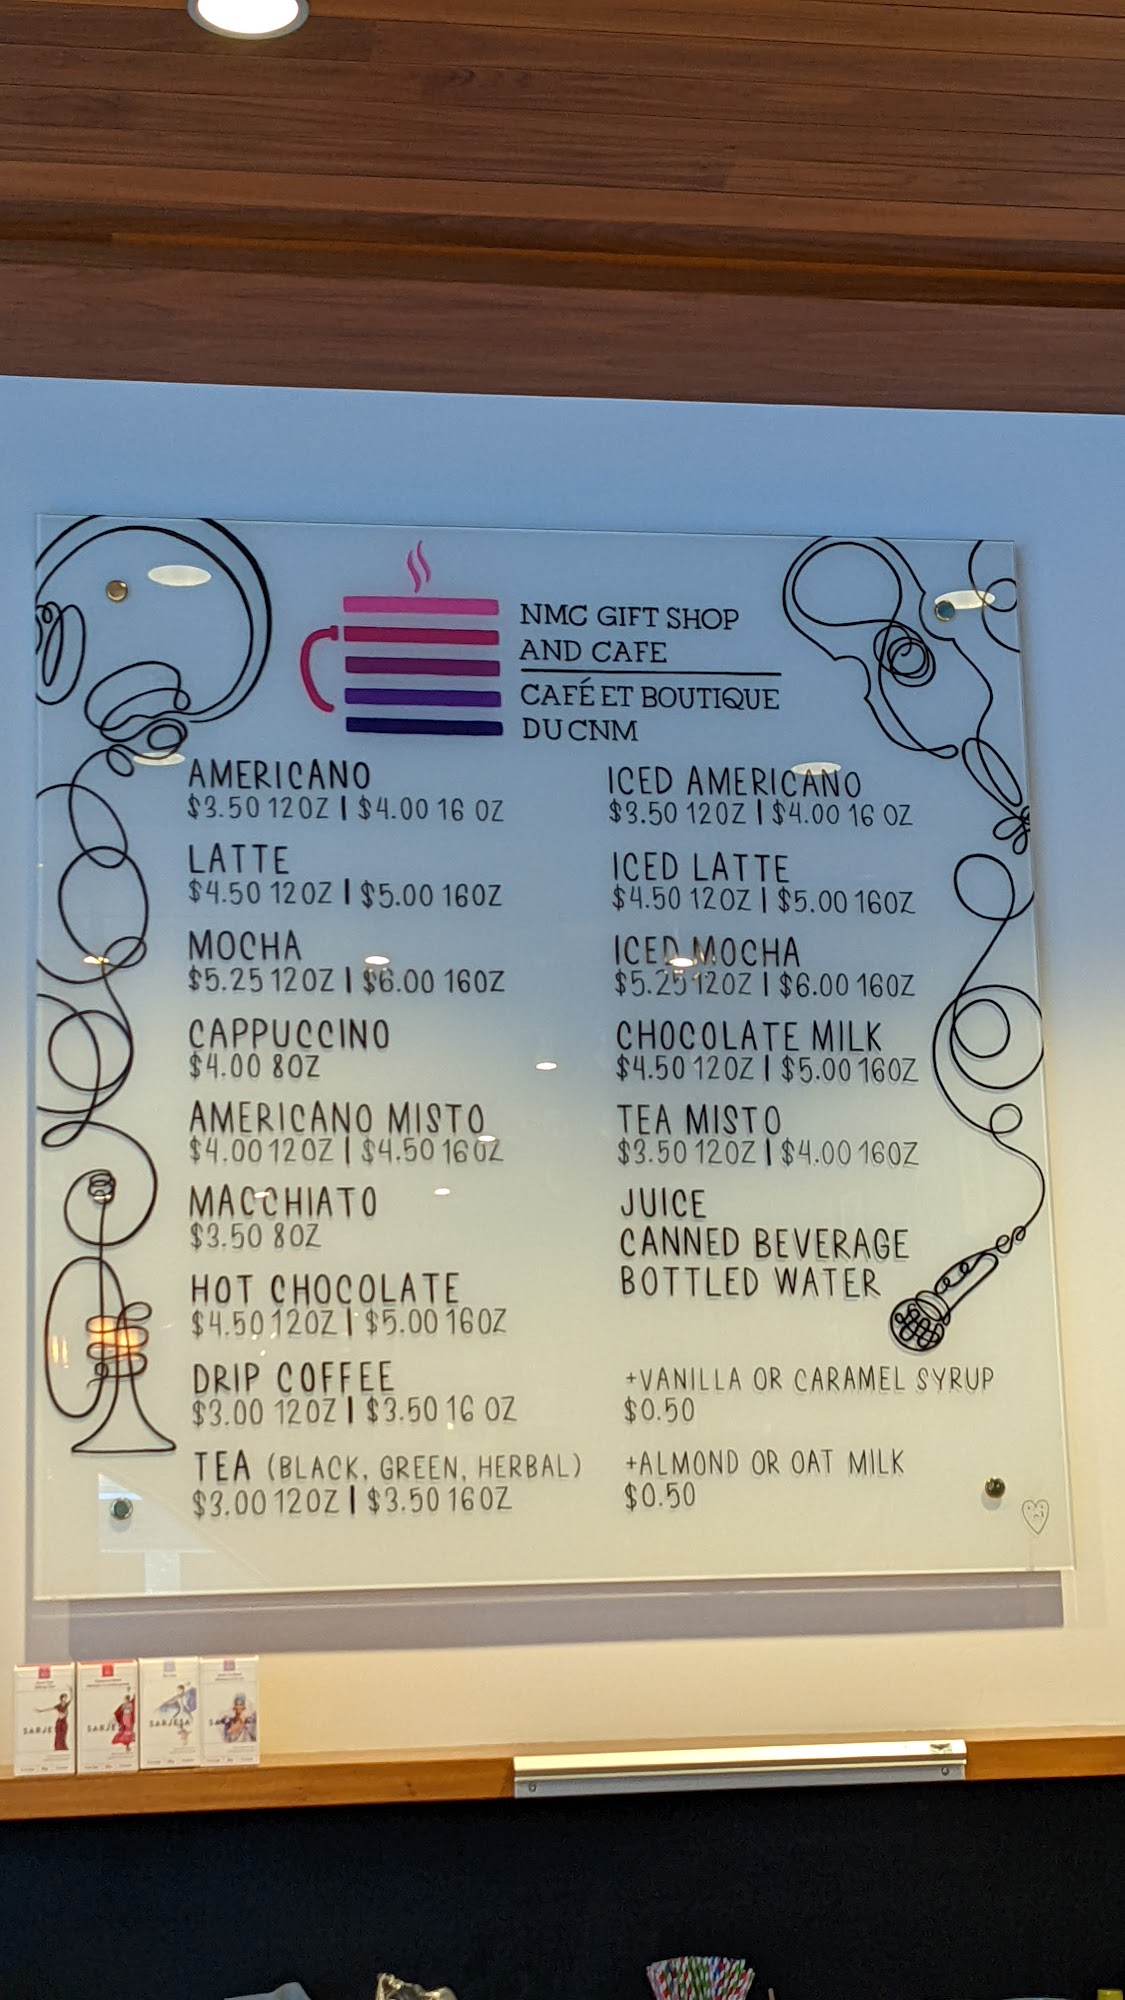 NMC GIFT SHOP
AND CAFE
CAFÉ ET BOUTIQUE
DU CNM
AMERICANO
$3.50 12OZ | $4.00 16 OZ
LATTE
$4.50 12OZ | $5.00 16OZ
MOCHA
$5.25 12OZ | $6.00 16OZ
CAPPUCCINO
$4.00 8OZ
AMERICANO MISTO
$4.00 12OZ | $4.50 16OZ
MACCHIATO
$3.50 8OZ
HOT CHOCOLATE
$4.50 12OZ | $5.00 16OZ
DRIP COFFEE
$3.00 12OZ | $3.50 16 OZ
TEA (BLACK, GREEN, HERBAL)
$3.00 12OZ | $3.50 16OZ
ICED AMERICANO
$3.50 12OZ | $4.00 16 OZ
ICED LATTE
$4.50 12OZ | $5.00 16OZ
ICED MOCHA
$5.25 12OZ | $6.00 16OZ
CHOCOLATE MILK
$4.50 12OZ | $5.00 16OZ
TEA MISTO
$3.50 12OZ | $4.00 16OZ
JUICE
CANNED BEVERAGE
BOTTLED WATER
+VANILLA OR CARAMEL SYRUP
$0.50
+ALMOND OR OAT MILK
$0.50
SARJESA